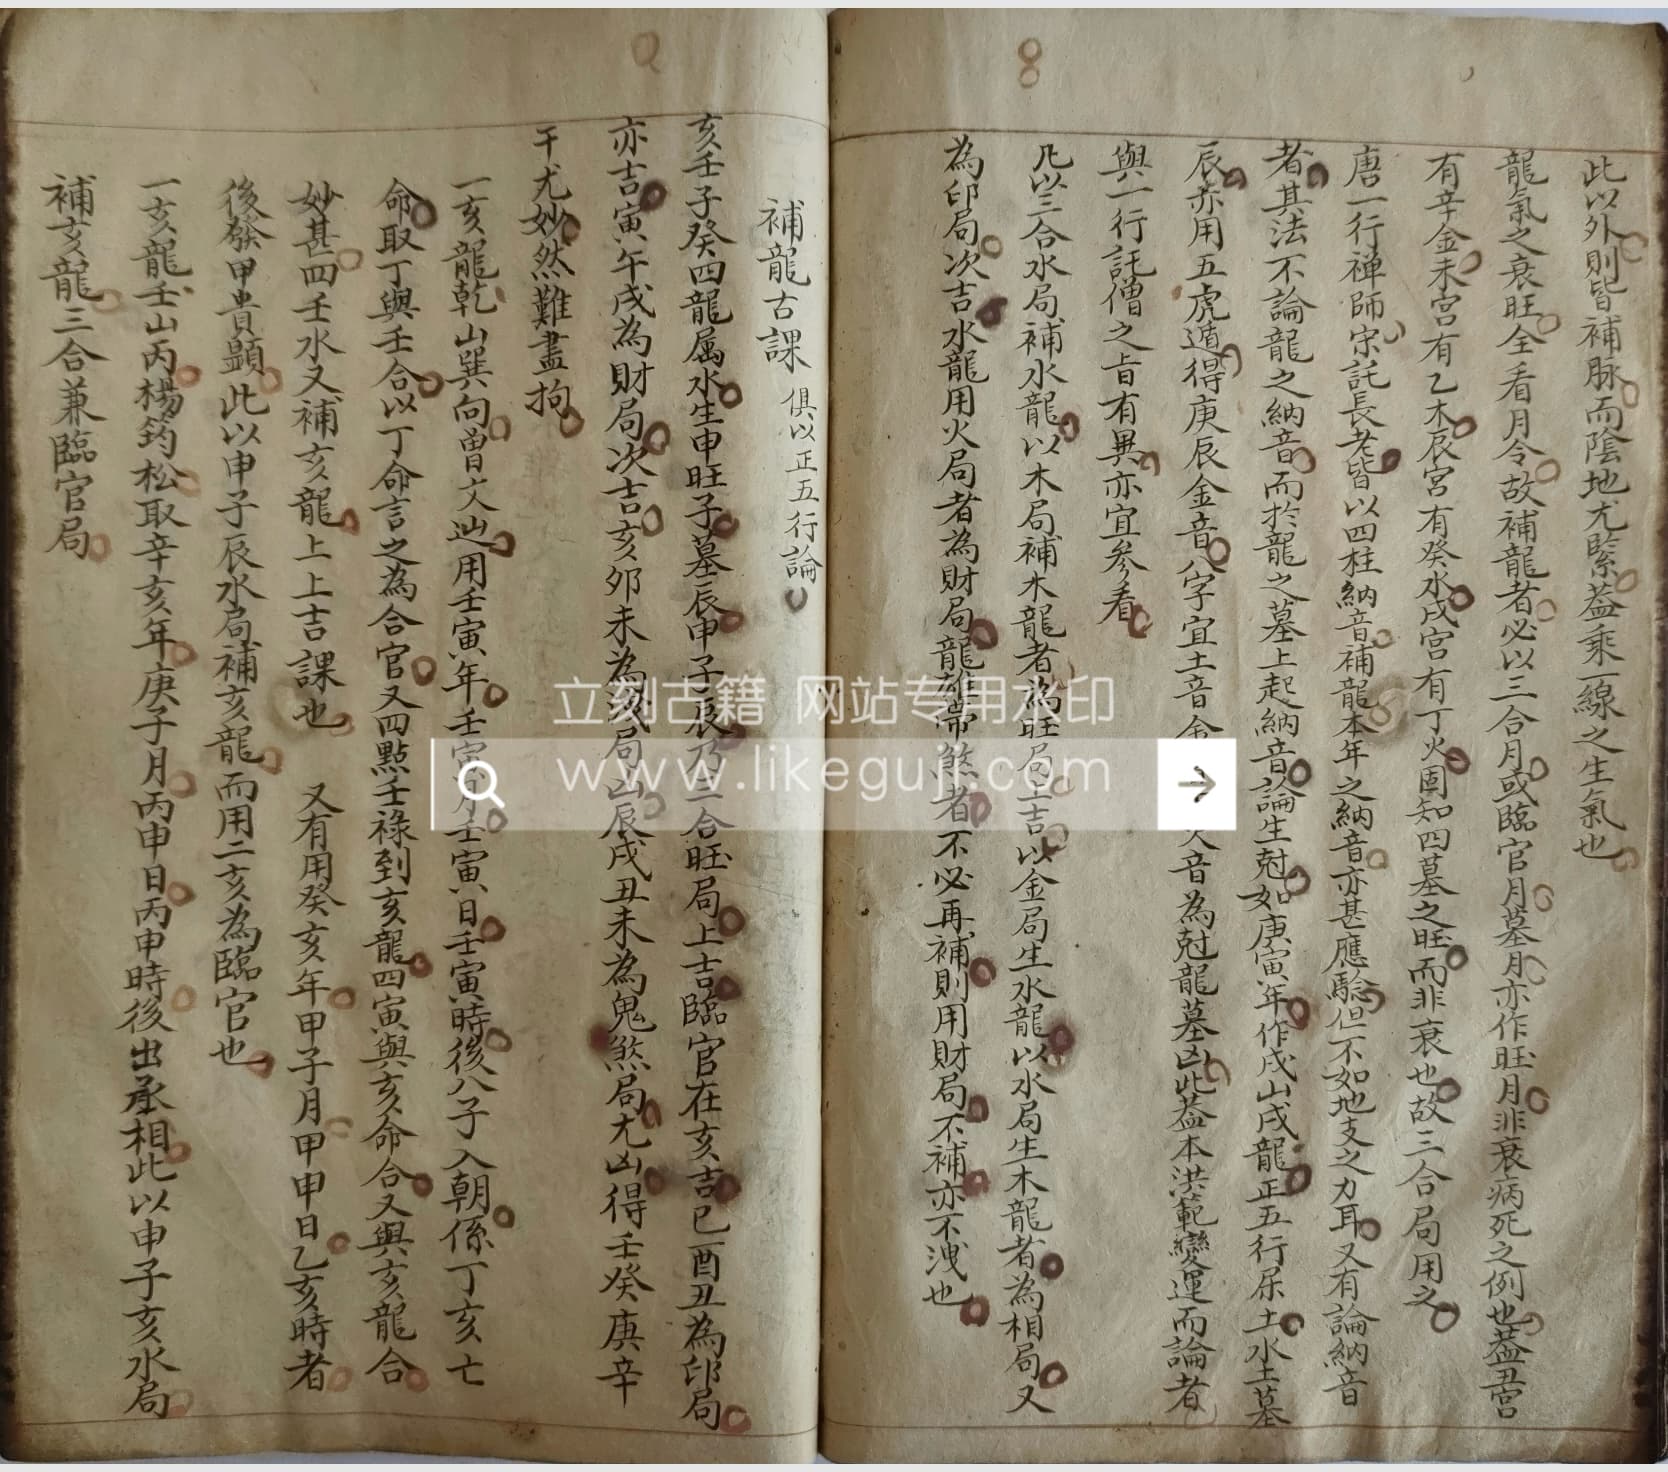 此以外則皆補脉而陰地尤緊蓋乘一線之生氣也
龍氣之衰旺全看月令故補龍者必以三合月或臨官月墓月亦作旺月非衰病死之例也蓋丑宮
有辛金未宮有乙木辰宮有癸水戌宮有丁火固知四墓之旺而非衰也故三合局用之
唐一行禅師宗託長老皆以四柱納音補龍本年之納音亦甚應驗但不如地支之力耳又有論納音
者其法不論龍之納音而於龍之墓上起納音論生尅如庚寅年作戌山戌龍正五行屬土水土墓
辰亦用五虎遁得庚辰金音八字宜土音金 火音為尅龍墓凶此蓋本洪範變運而論者
與一行託僧之旨有異亦宜參看
凡以三合水局補水龍以木局補木龍者為旺局上吉以金局生水龍以水局生木龍者為相局又
為印局次吉水龍用火局者為財局龍雄帶煞者不必再補則用財局不補亦不洩也
補龍古課 俱以正五行論
亥壬子癸四龍属水生申旺子墓辰申子辰乃三合旺局上吉臨官在亥吉巳酉丑為印局
亦吉寅午戌為財局次吉亥卯未為洩局凶辰戌丑未為鬼煞局尤凶得壬癸庚辛
干尤妙然難盡拘
一亥龍乾山巽向曾文辿用壬寅年壬寅月壬寅日壬寅時後八子入朝係丁亥亡
命取丁與壬合以丁命言之為合官又四點壬祿到亥龍四寅與亥命合又與亥龍合
妙甚四壬水又補亥龍上上吉課也 又有用癸亥年甲子月甲申日乙亥時者
後發甲貴顯此以申子辰水局補亥龍而用二亥為臨官也
一亥龍壬山丙楊筠松取辛亥年庚子月丙申日丙申時後出丞相此以申子亥水局
補亥龍三合兼臨官局
立刻古籍 网站专用水印
www.likeguji.com